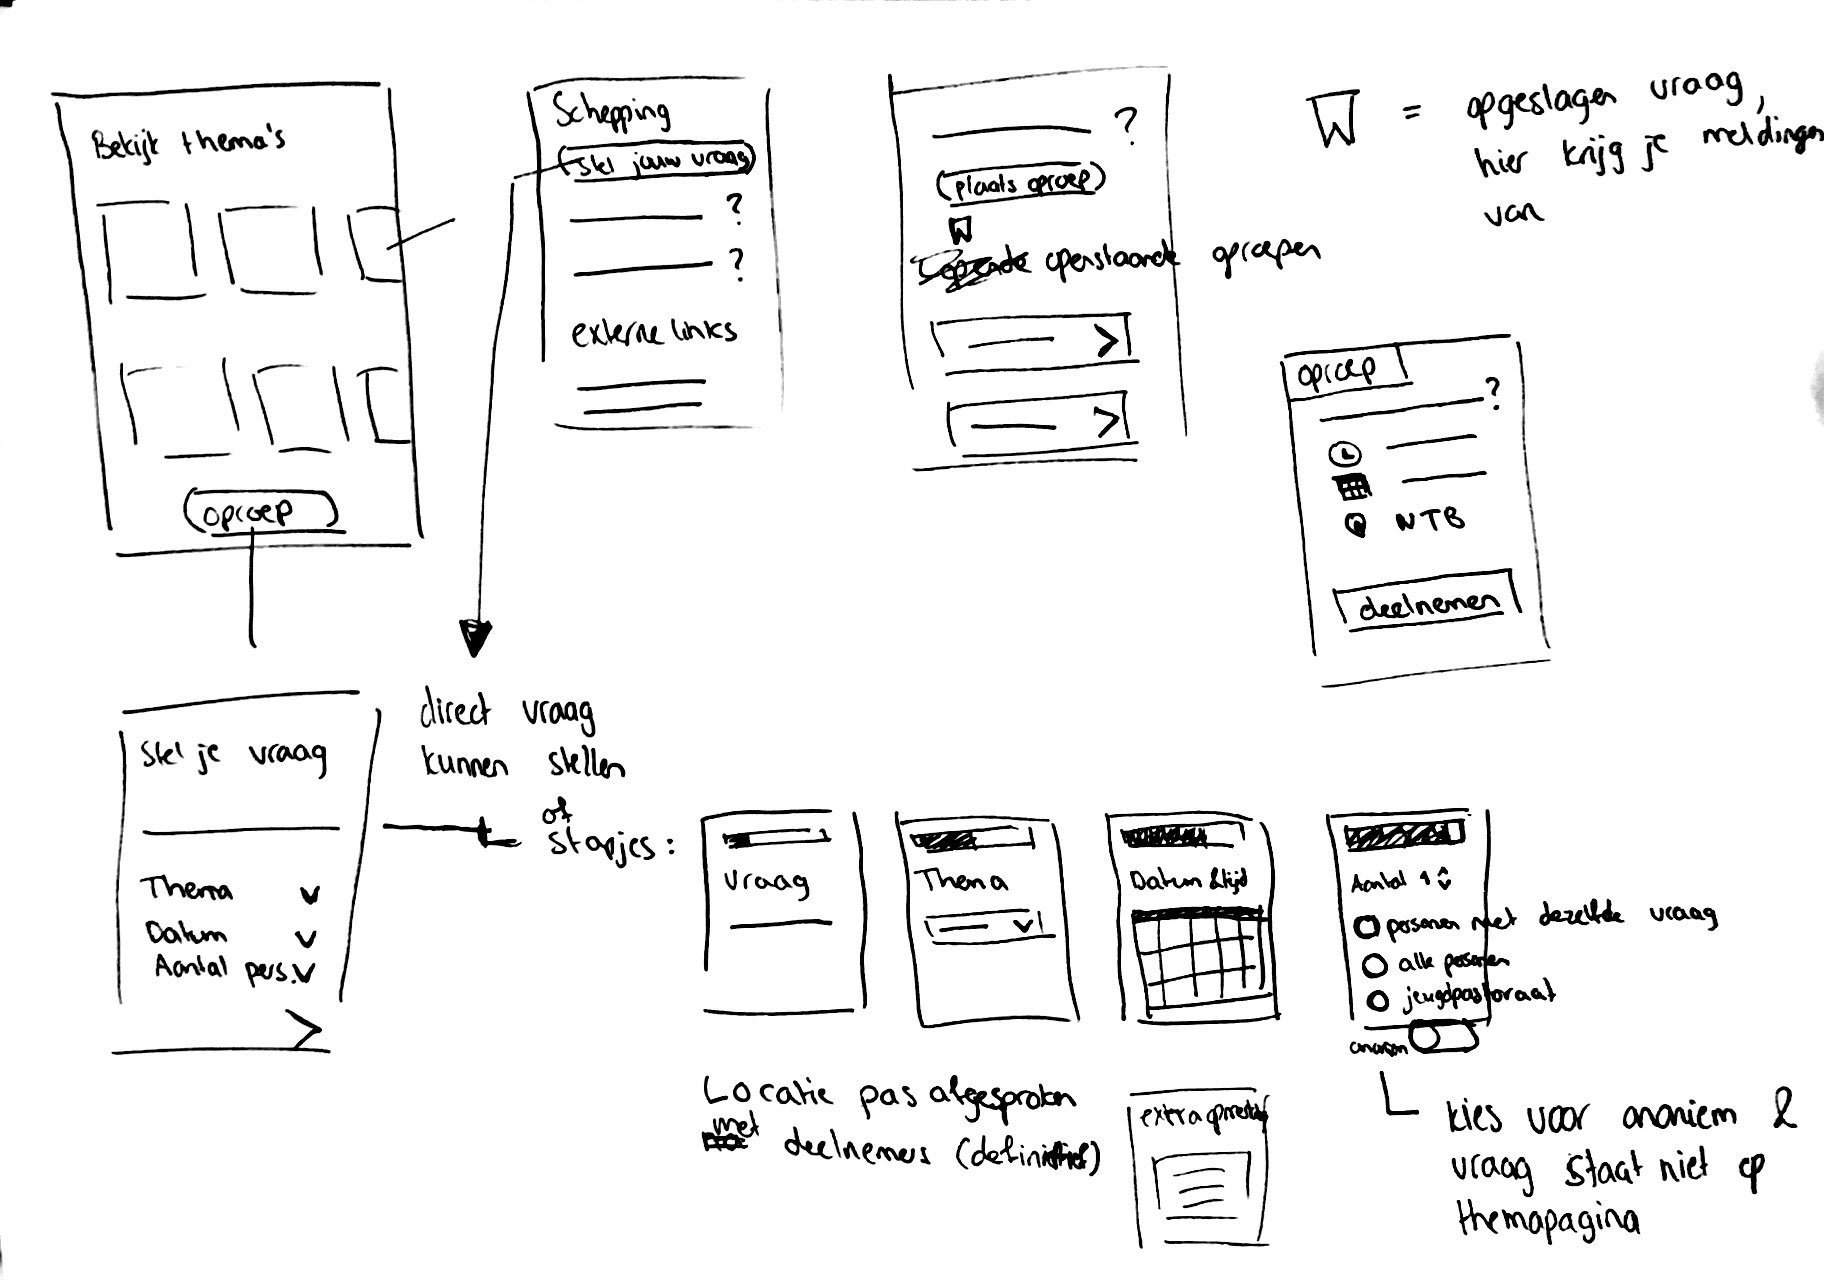 Bekijt thema's
oproep
Schepping
stel jouw vraag
?
?
externe links
?
plaats oproep
openstaande oproepen
= opgeslagen vraag,
hier krijg je meldingen
van
oproep
?
NTB
deelnemen
Stel je vraag
Thema
Datum
Aantal pers.
direct vraag
kunnen stellen
of
stapjes:
vraag
Thema
Datum & tijd
Aantal 1
personen met dezelfde vraag
alle personen
jeugdpastoraat
anoniem
Locatie pas afgesproken
met deelnemers (definitief)
extra
kies voor anoniem &
vraag staat niet op
themapagina